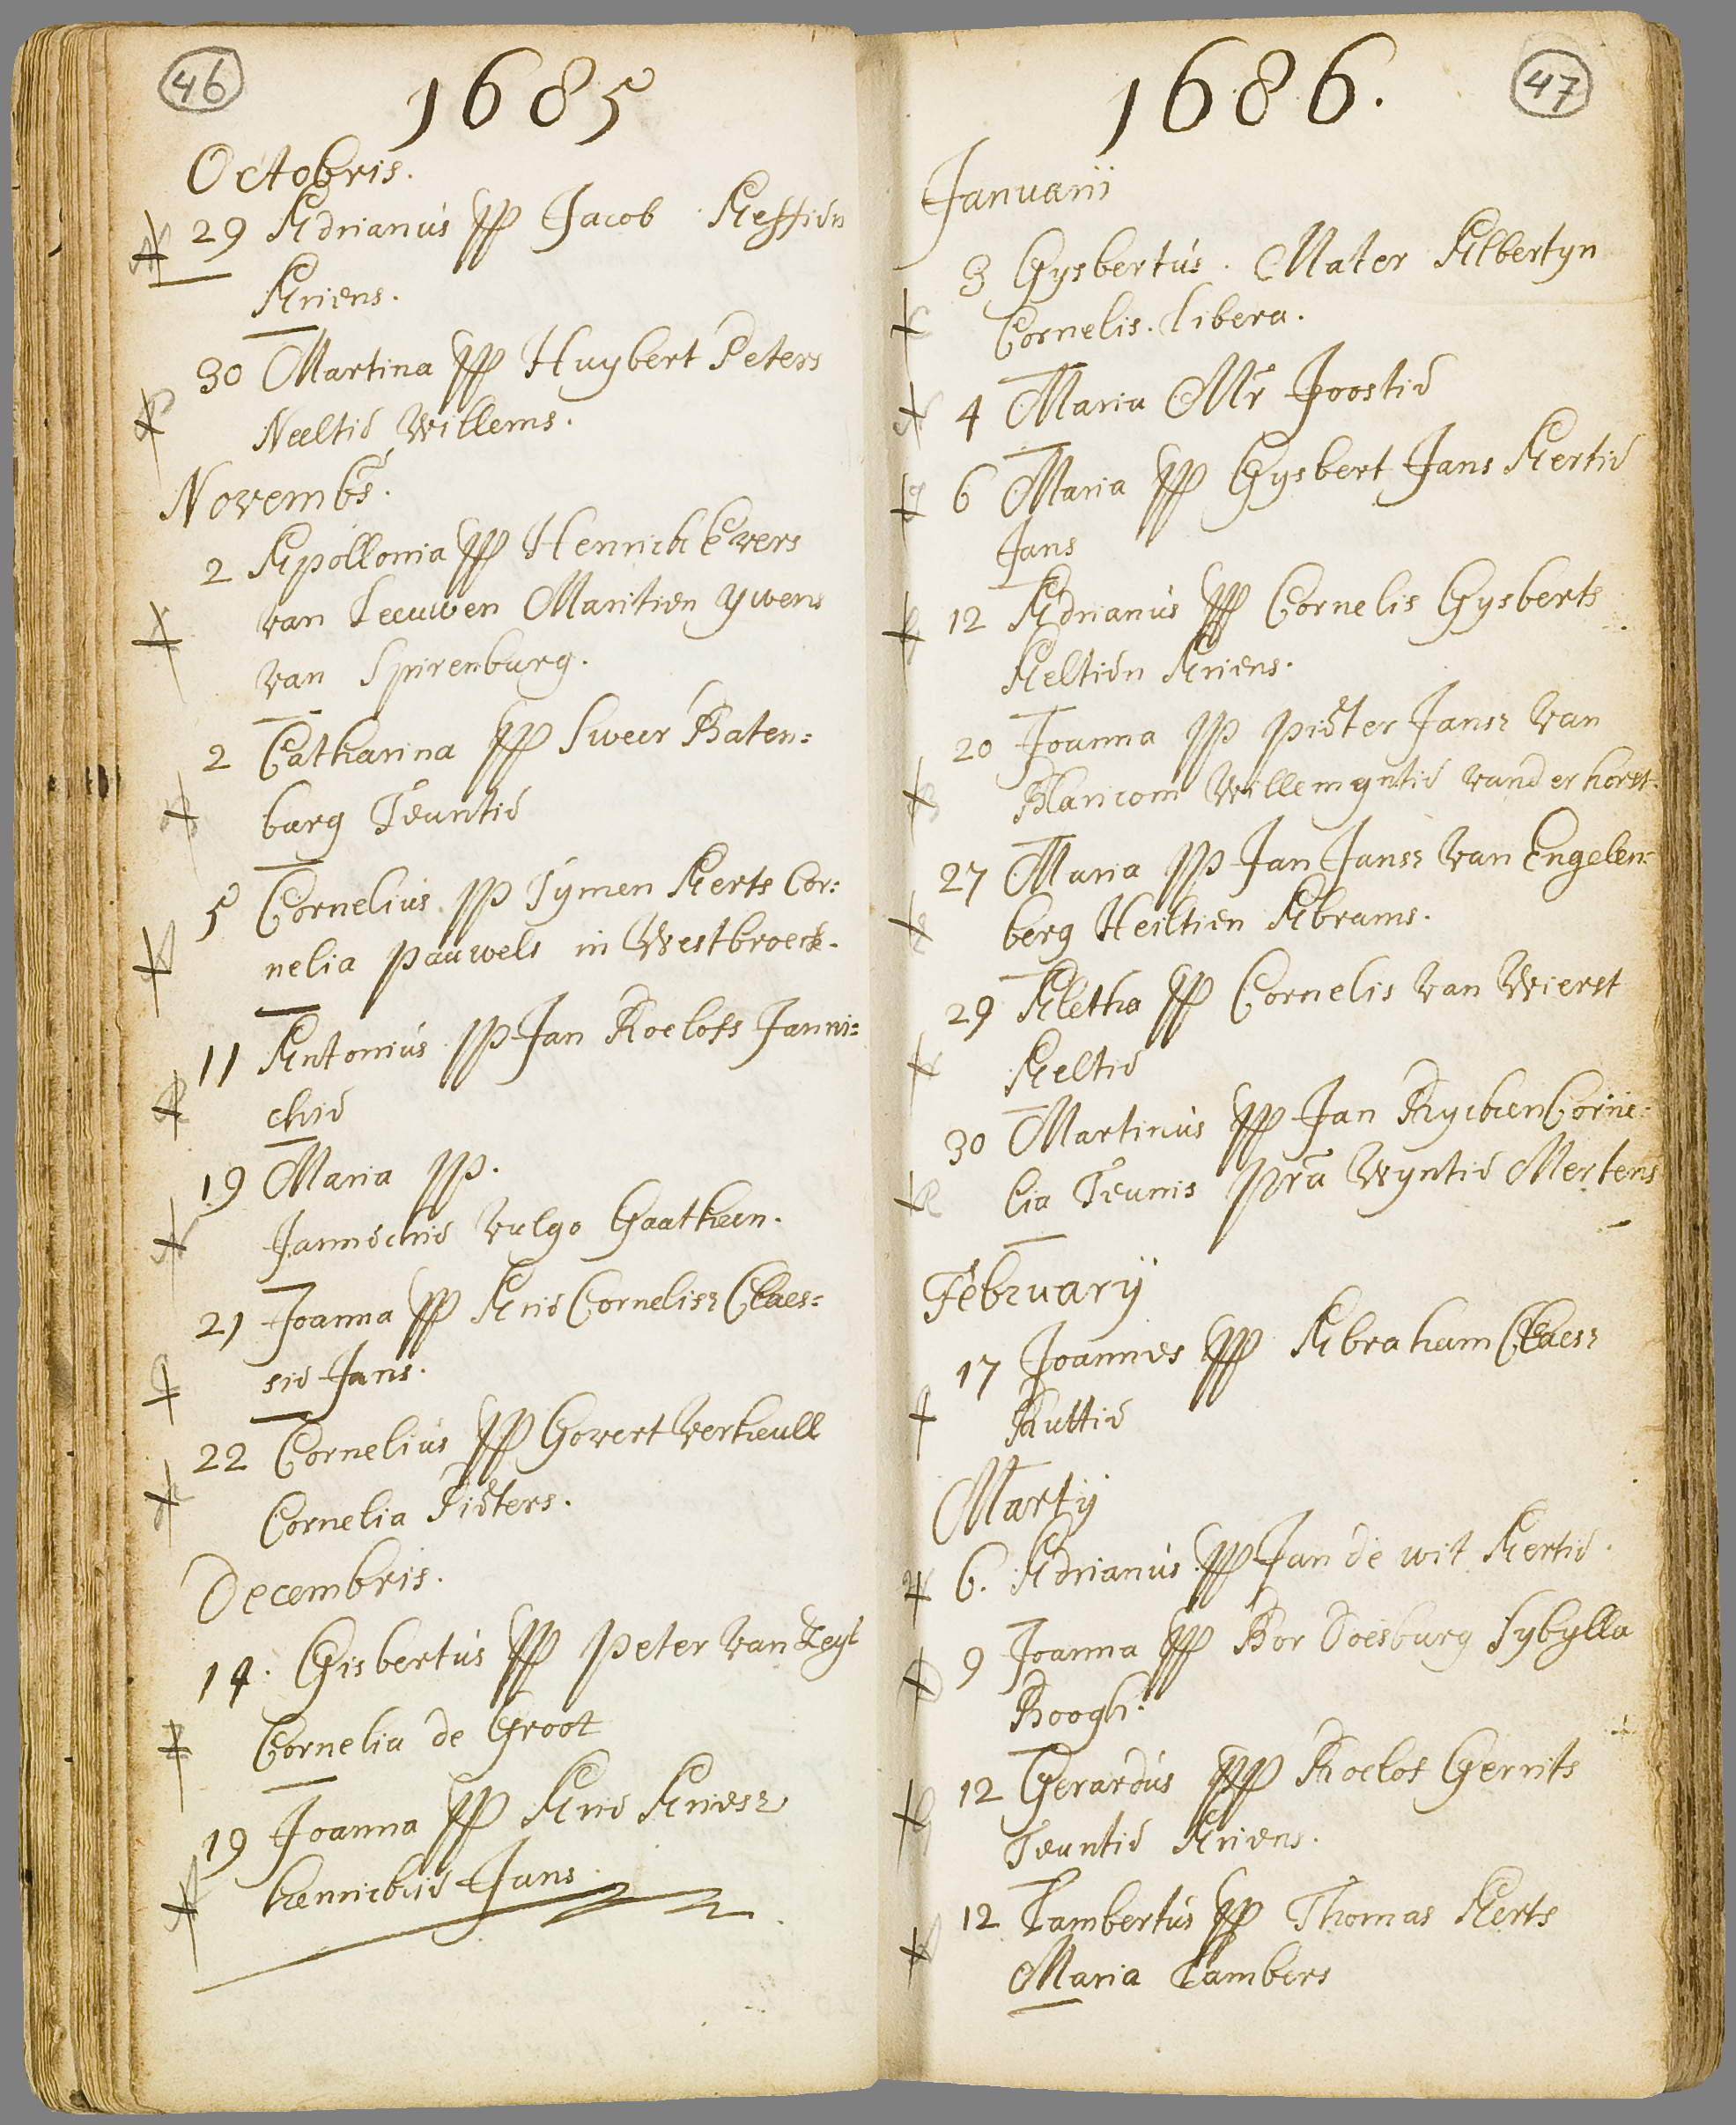 46
1685
Octobris.
29 Adrianus PP Jacob Aeffien
Ariens.
30 Martina PP Huybert Peters
Neeltie Willems.
Novembs.
2 Apollonia PP Henrick Evers
van Leeuwen Maritien Ywens
van Spirenburg.
2 Catharina PP Sweer Baten=
burg Teuntie
5 Cornelius PP Tymen Aerts Cor=
nelia Pauwels in Westbroeck.
11 Antonius PP Jan Roelofs Janni=
chie
19 Maria PP.
Jannichie vulgo Gaatheen.
21 Joanna PP Arie Cornelisz Claes=
sie Jans.
22 Cornelius PP Govert Verheull
Cornelia Pieters.
Decembris.
14. Gisbertus PP Peter van Zeyl
Cornelia de Groot
19 Joanna PP Arie Ariesz
hennichie Jans
47
1686.
Januarii
3 Gysbertus. Mater Albertyn
Cornelis. libera.
4 Maria Mr Joostie
6 Maria PP Gysbert Jans Aertie
Jans
12 Adrianus PP Cornelis Gysberts
Aeltien Ariens.
20 Joanna PP Pieter Jansz van
Blaricom Willemyntie vander horst.
27 Maria PP Jan Jansz van Engelen=
berg Heiltien Abrams.
29 Aletha PP Cornelis van Wierst
Aeltie
30 Martinus PP Jan Ryckens Corne=
lia Teunis Pra Wyntie Mertens
February
17 Joannes PP Abraham Claesz
Ruttie
Marty
6. Adrianus PP Jan de wit Aertie.
9 Joanna PP Bor Doesburg Sybylla
Boogh.
12 Gerardus PP Roelof Gerrits
Teuntie Ariens.
12 Lambertus PP Thomas Aerts
Maria Lambers